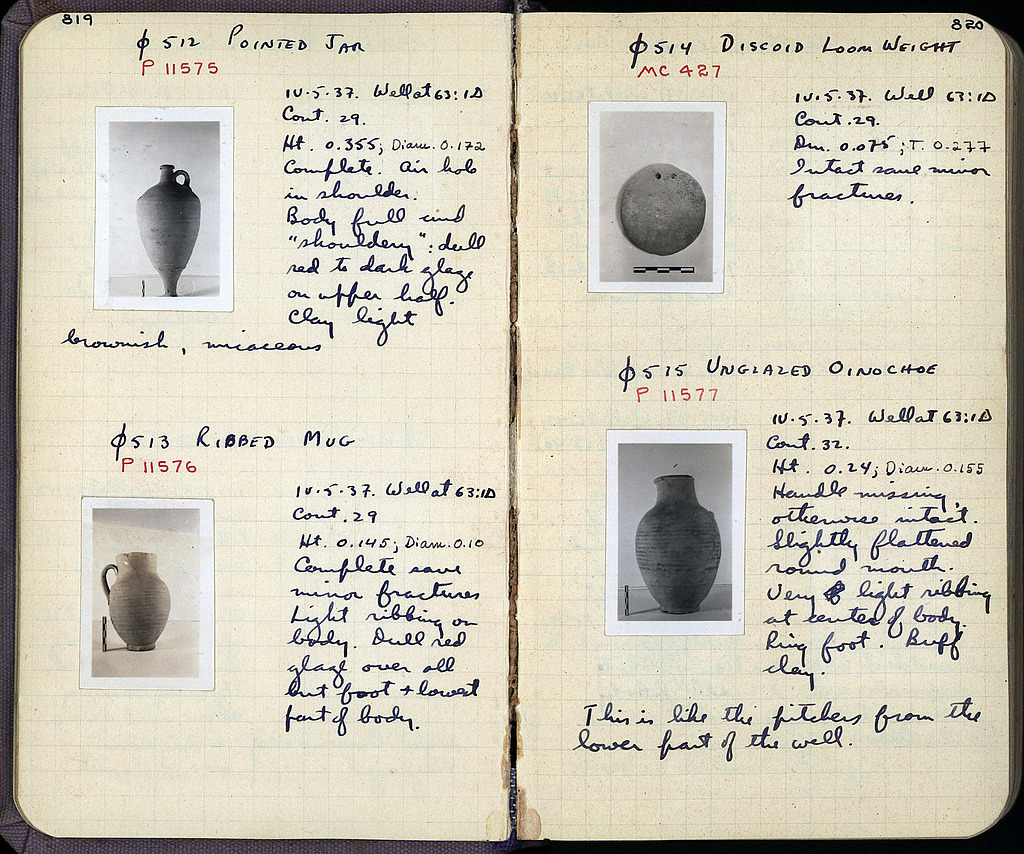 819
φ 512 POINTED JAR
P 11575
IV.5.37. Well at 63:ΙΔ
Cont. 29.
Ht. 0.355; Diam. 0.172
Complete. Air hole
in shoulder.
Body full and
"shouldery": dull
red to dark glaze
on upper half.
Clay light
brownish, micaceous
φ513 RIBBED MUG
P 11576
IV.5.37. Well at 63:ΙΔ
Cont. 29
Ht. 0.145; Diam. 0.10
Complete save
minor fractures
Light ribbing on
body. Dull red
glaze over all
but foot + lowest
part of body.
820
φ514 DISCOID LOOM WEIGHT
MC 427
IV.5.37. Well 63:ΙΔ
Cont. 29.
Dm. 0.075; T. 0.277
Intact save minor
fractures.
φ515 UNGLAZED OINOCHOE
P 11577
IV.5.37. Well at 63:ΙΔ
Cont. 32.
Ht. 0.24; Diam. 0.155
Handle missing,
otherwise intact.
Slightly flattened
round mouth.
Very light ribbing
at center of body.
Ring foot. Buff
clay.
This is like the pitchers from the
lower part of the well.